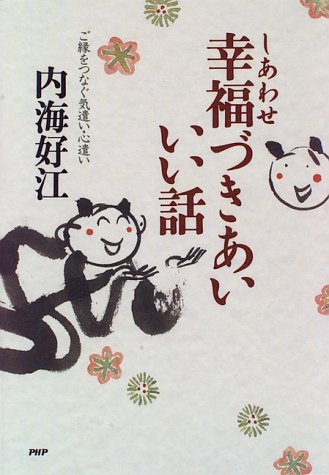 しあわせ
幸福づきあい
いい話
ご縁をつなぐ気遣い・心遣い
内海好江
PHP